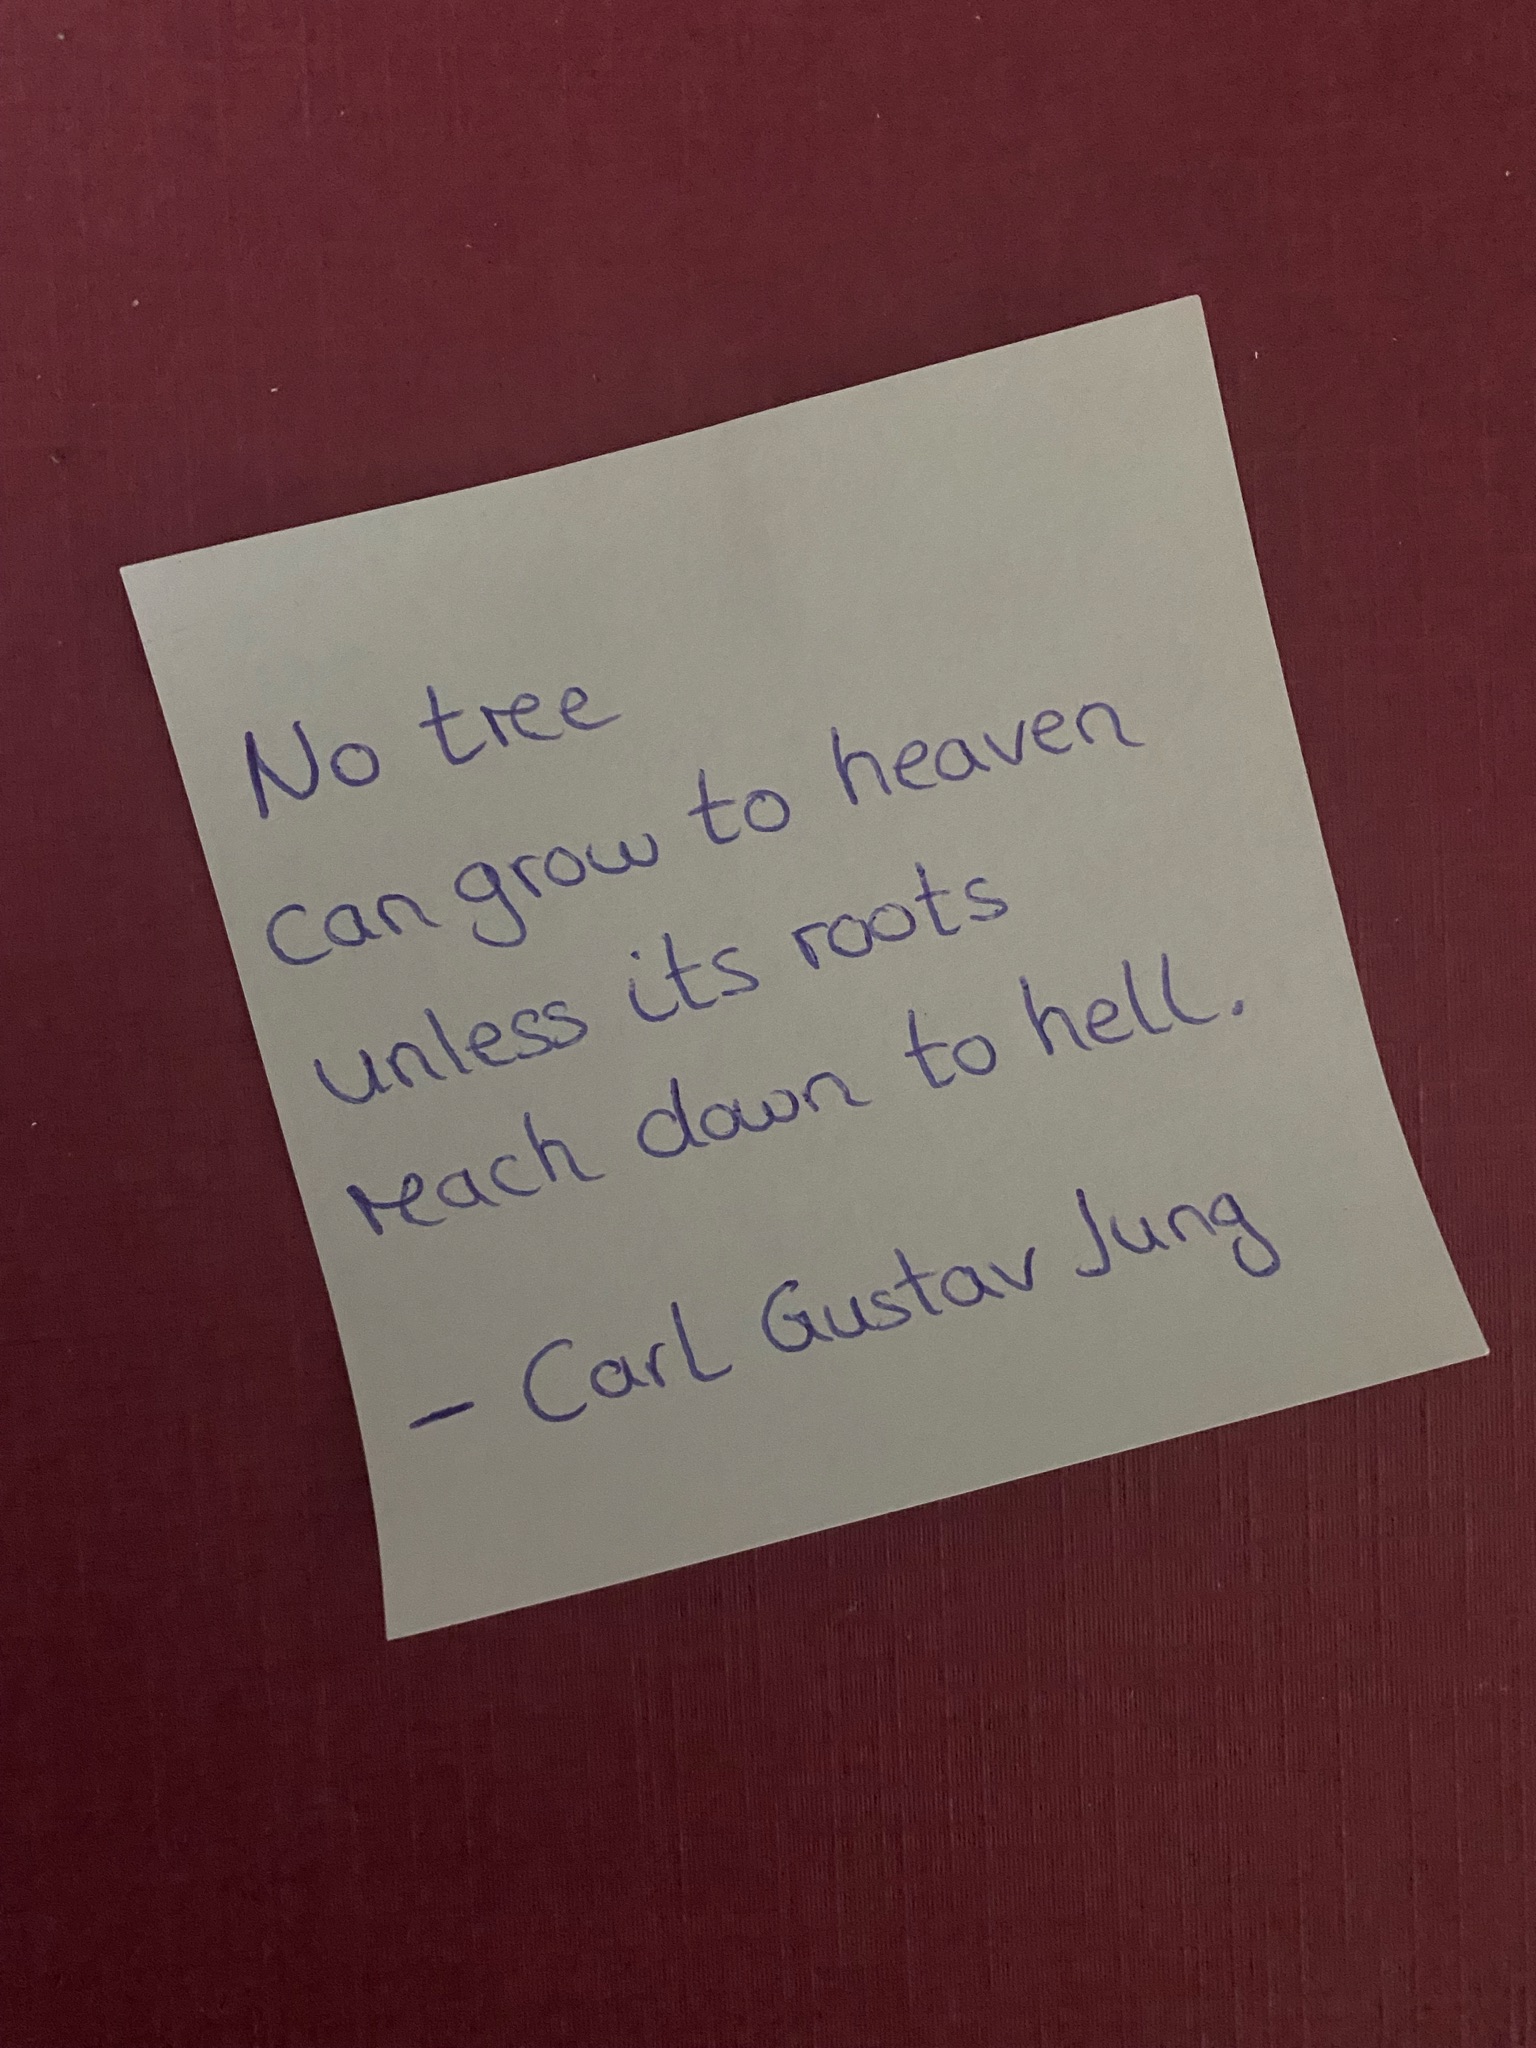 No tree
can grow to heaven
unless its roots
reach down to hell.
- Carl Gustav Jung